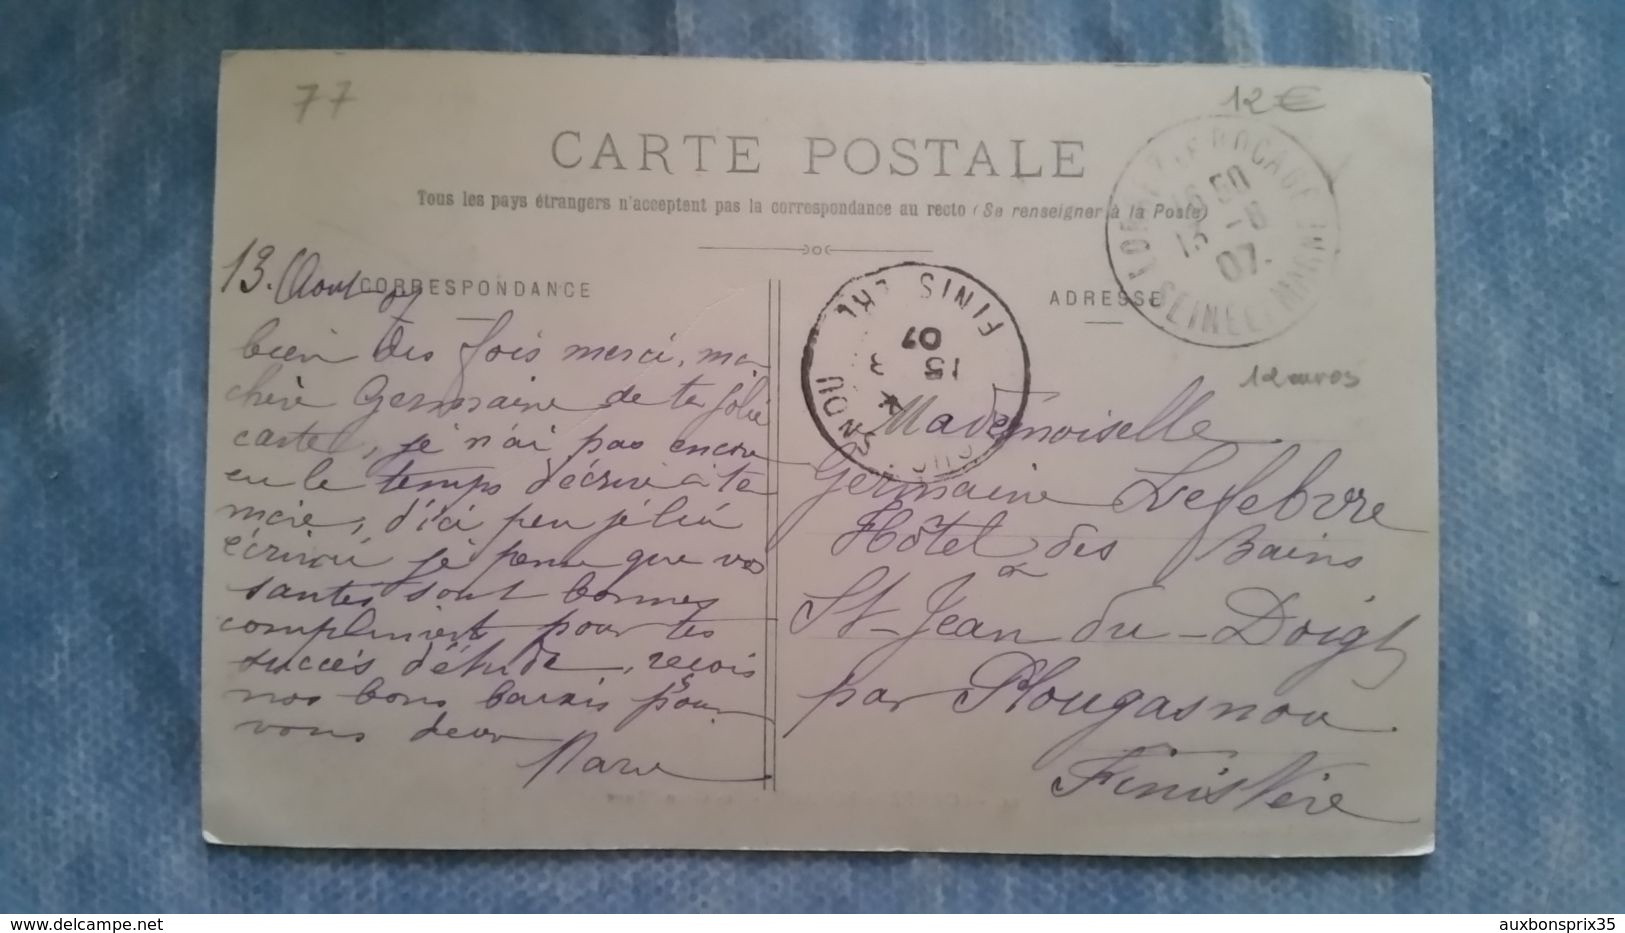 77
12€
CARTE POSTALE
Tous les pays étrangers n'acceptent pas la correspondance au recto (Se renseigner à la Poste)
CORRESPONDANCE
13. Aout 07
bien des fois merci, ma
chère Germaine de ta jolie
carte, je n'ai pas encore
eu le temps d'écrire à ta
mère, d'ici peu je lui
écrirai je pense que vos
santés sont bonnes
compliments pour tes
succès d'étude, reçois
nos bons baisers pour
vous deux
Marie
ADRESSE
16 50
13 -8
07.
SEINE ET MARNE
FINISTERE
15
8
07
12 euros
Mademoiselle
Germaine Lefebvre
Hôtel des Bains
St-Jean du-Doigt
par Plougasnou
Finistère
auxbonsprix35